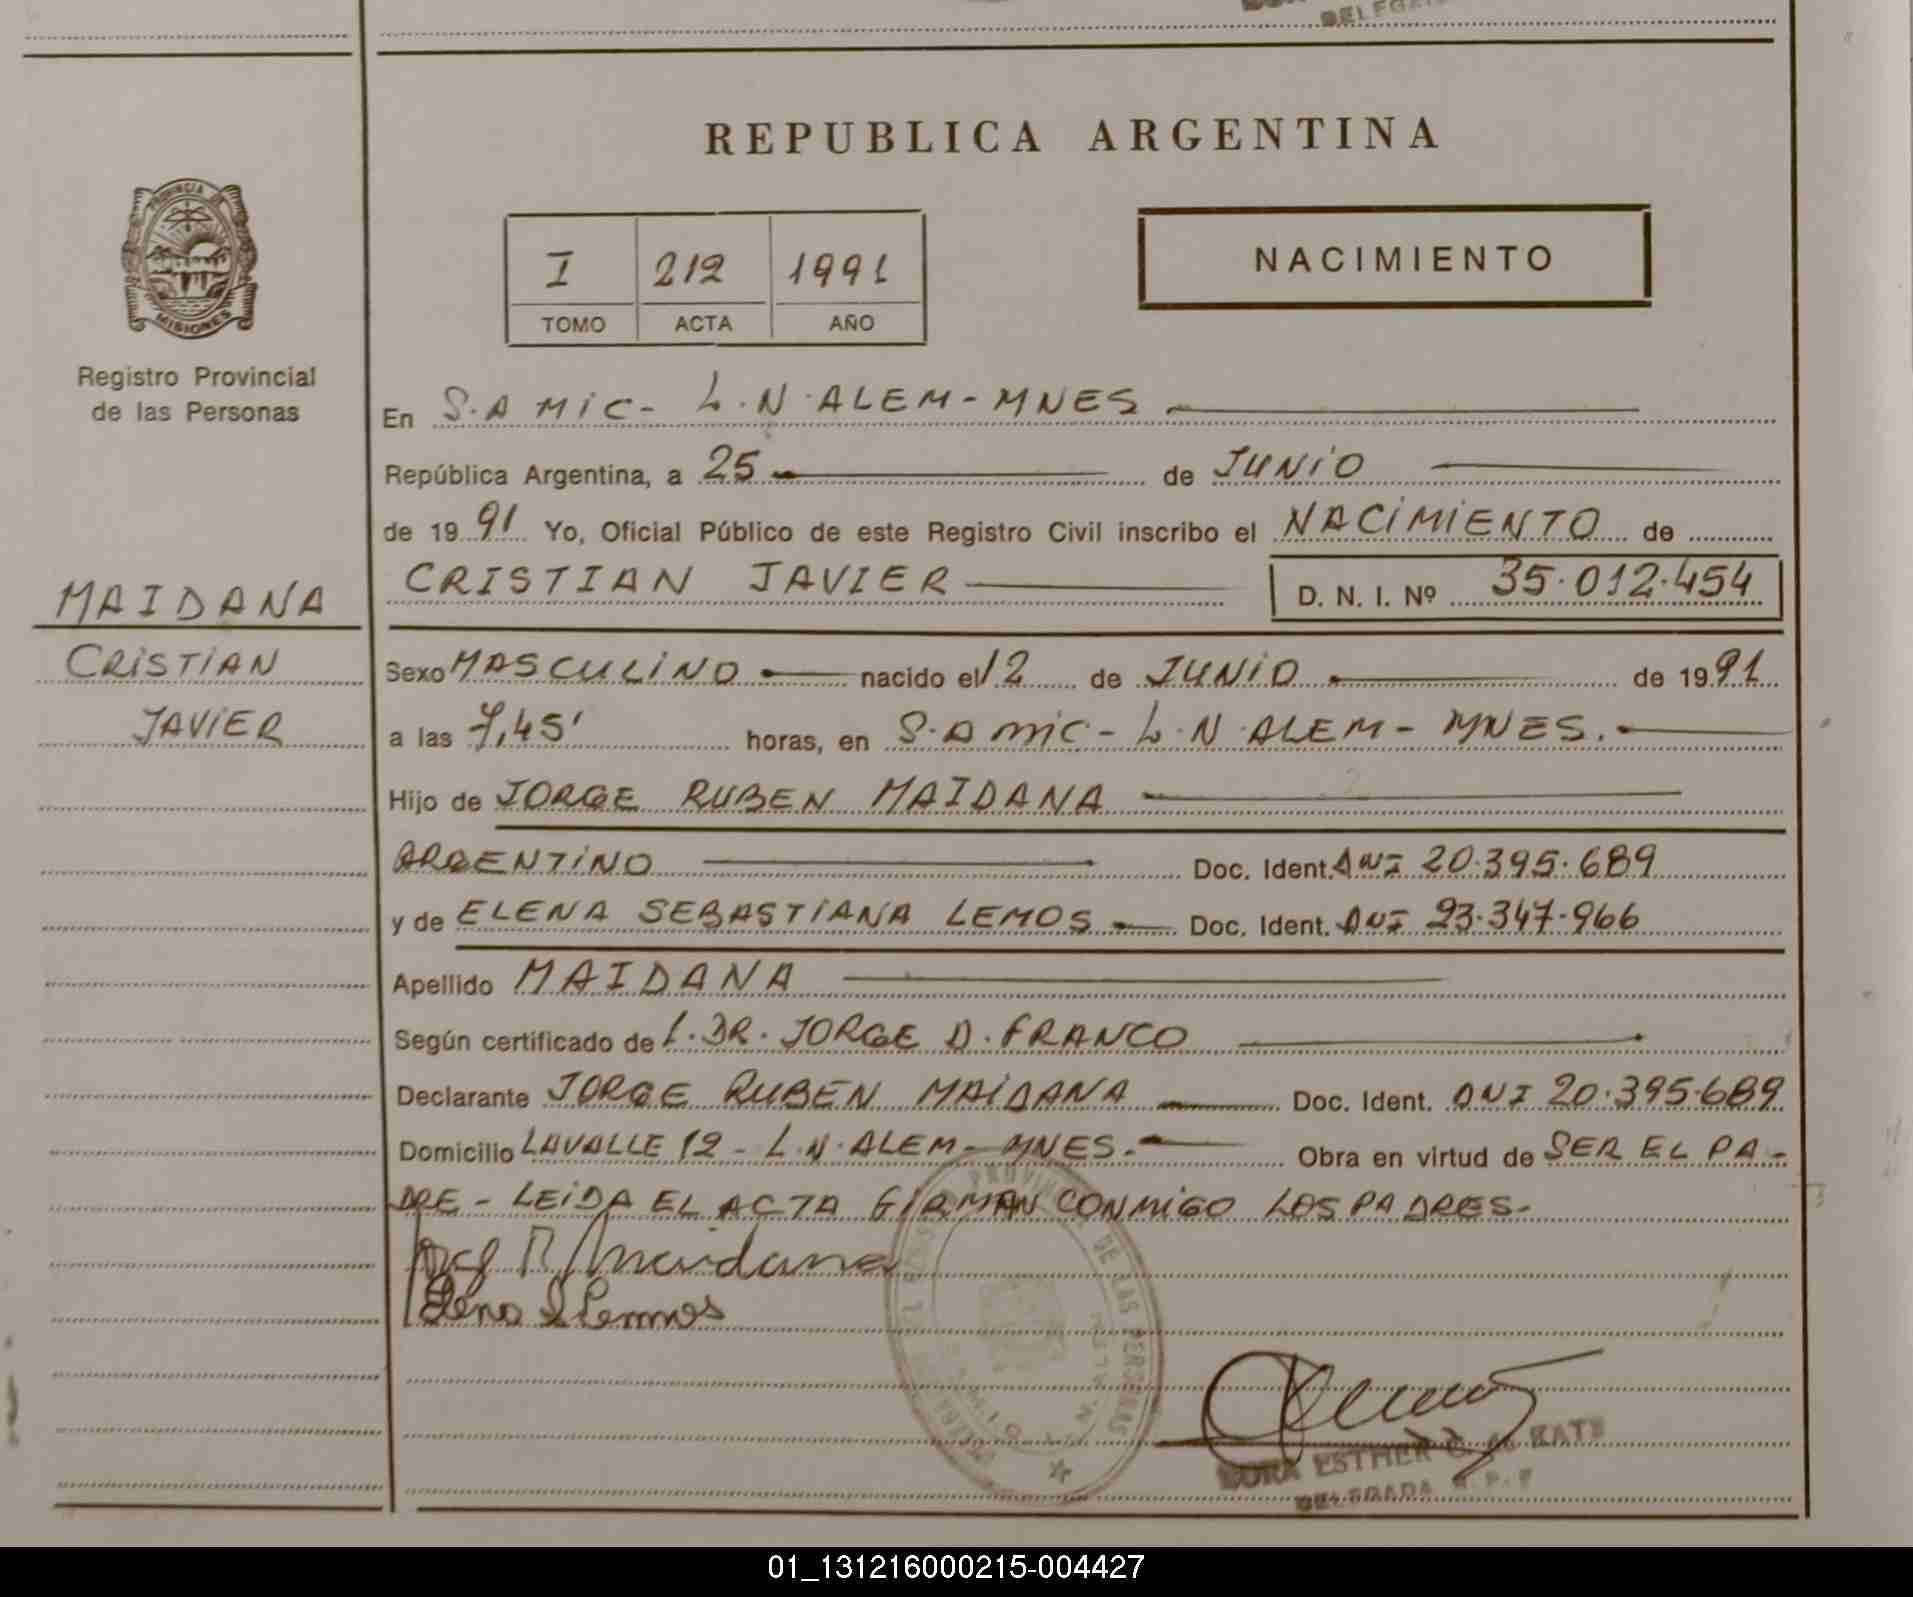 DELEGA
REPUBLICA ARGENTINA
PROVINCIA DE
MISIONES
Registro Provincial
de las Personas
I 212 1991
TOMO ACTA AÑO
NACIMIENTO
En S.A MIC- L.N.ALEM-MNES
República Argentina, a 25 de JUNIO
de 1991 Yo, Oficial Público de este Registro Civil inscribo el NACIMIENTO de
CRISTIAN JAVIER D. N. I. Nº 35.012.454
MAIDANA
CRISTIAN
JAVIER
Sexo MASCULINO nacido el 12 de JUNIO de 1991
a las 7,45' horas, en S.A MIC- L.N.ALEM- MNES.
Hijo de JORGE RUBEN MAIDANA
ARGENTINO Doc. Ident. DNI 20.395.689
y de ELENA SEBASTIANA LEMOS Doc. Ident. DNI 23.347.966
Apellido MAIDANA
Según certificado de l.DR. JORGE D. FRANCO
Declarante JORGE RUBEN MAIDANA Doc. Ident. DNI 20.395.689
Domicilio LAVALLE 12 - L.N.ALEM- MNES.- Obra en virtud de SER EL PA-
DRE - LEIDA EL ACTA FIRMAN CONMIGO LOS PADRES.-
R Maidana
Elena S Lemos
PROVIN DE LAS PERSONAS
DORA ESTHER
DELEGADA R. P. P
01_131216000215-004427